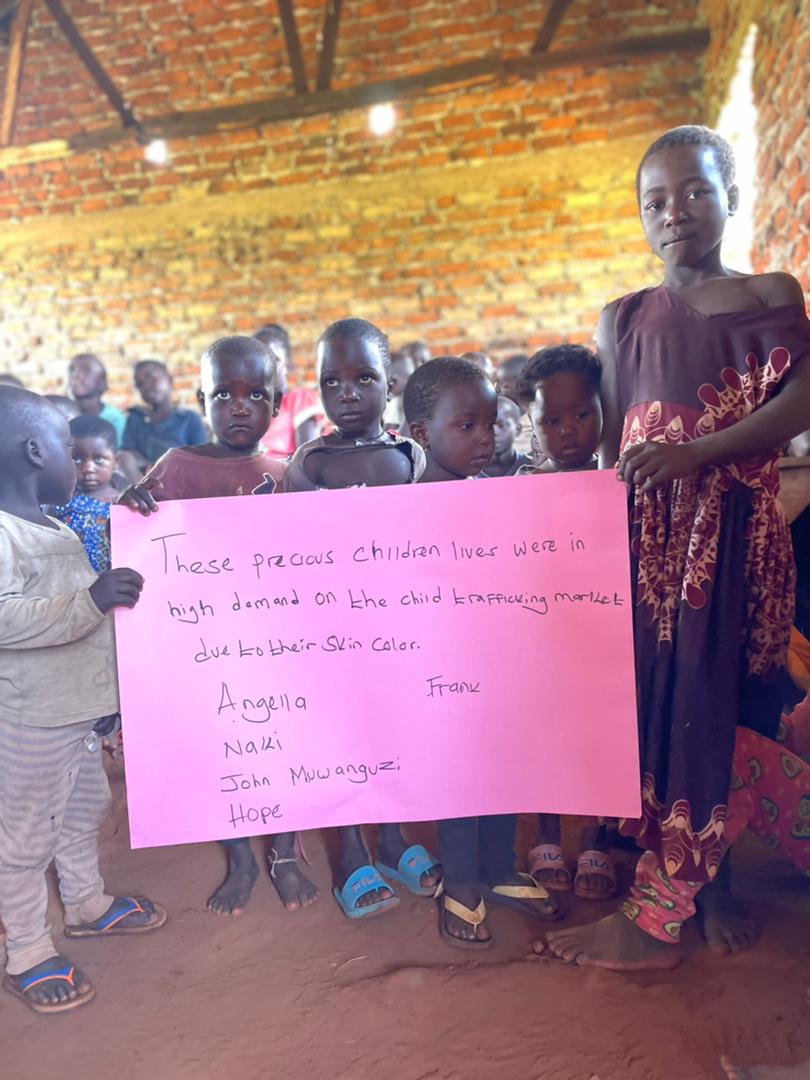 These precious children lives were in
high demand on the child trafficking market
due to their Skin Color.
Angella
Frank
Naki
John Muwanguzi
Hope
FILA
FILA
FILA